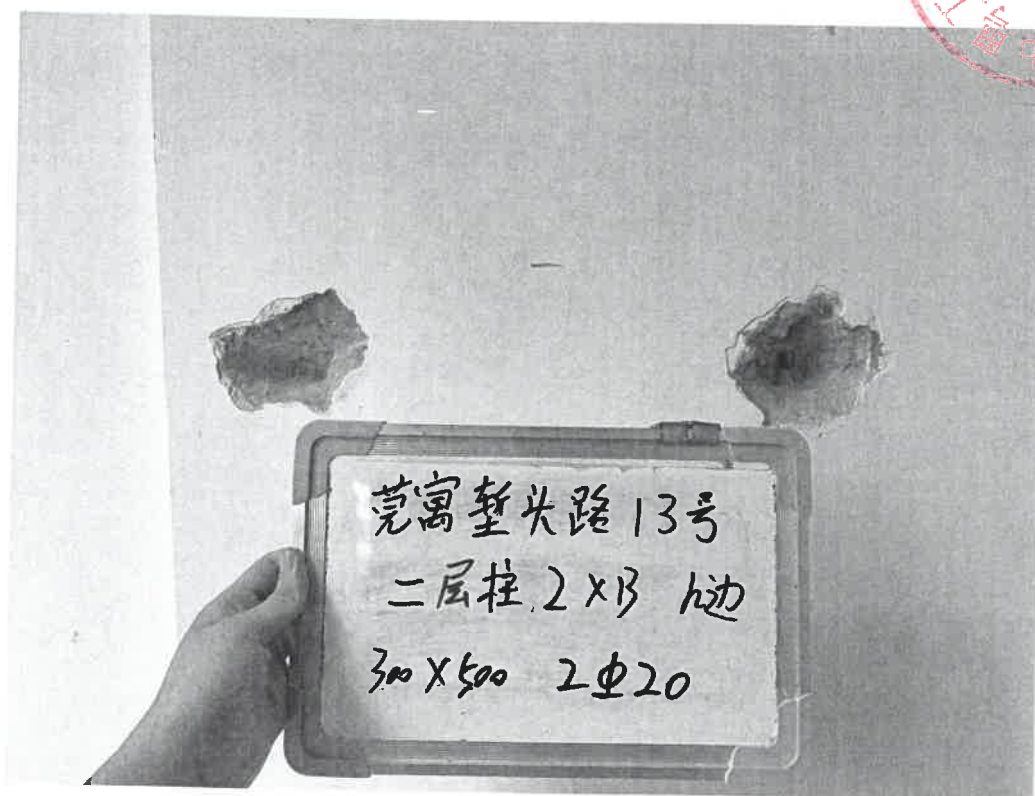 莞寓墊头路13号
二层柱 2×B h边
300×500 2Φ20